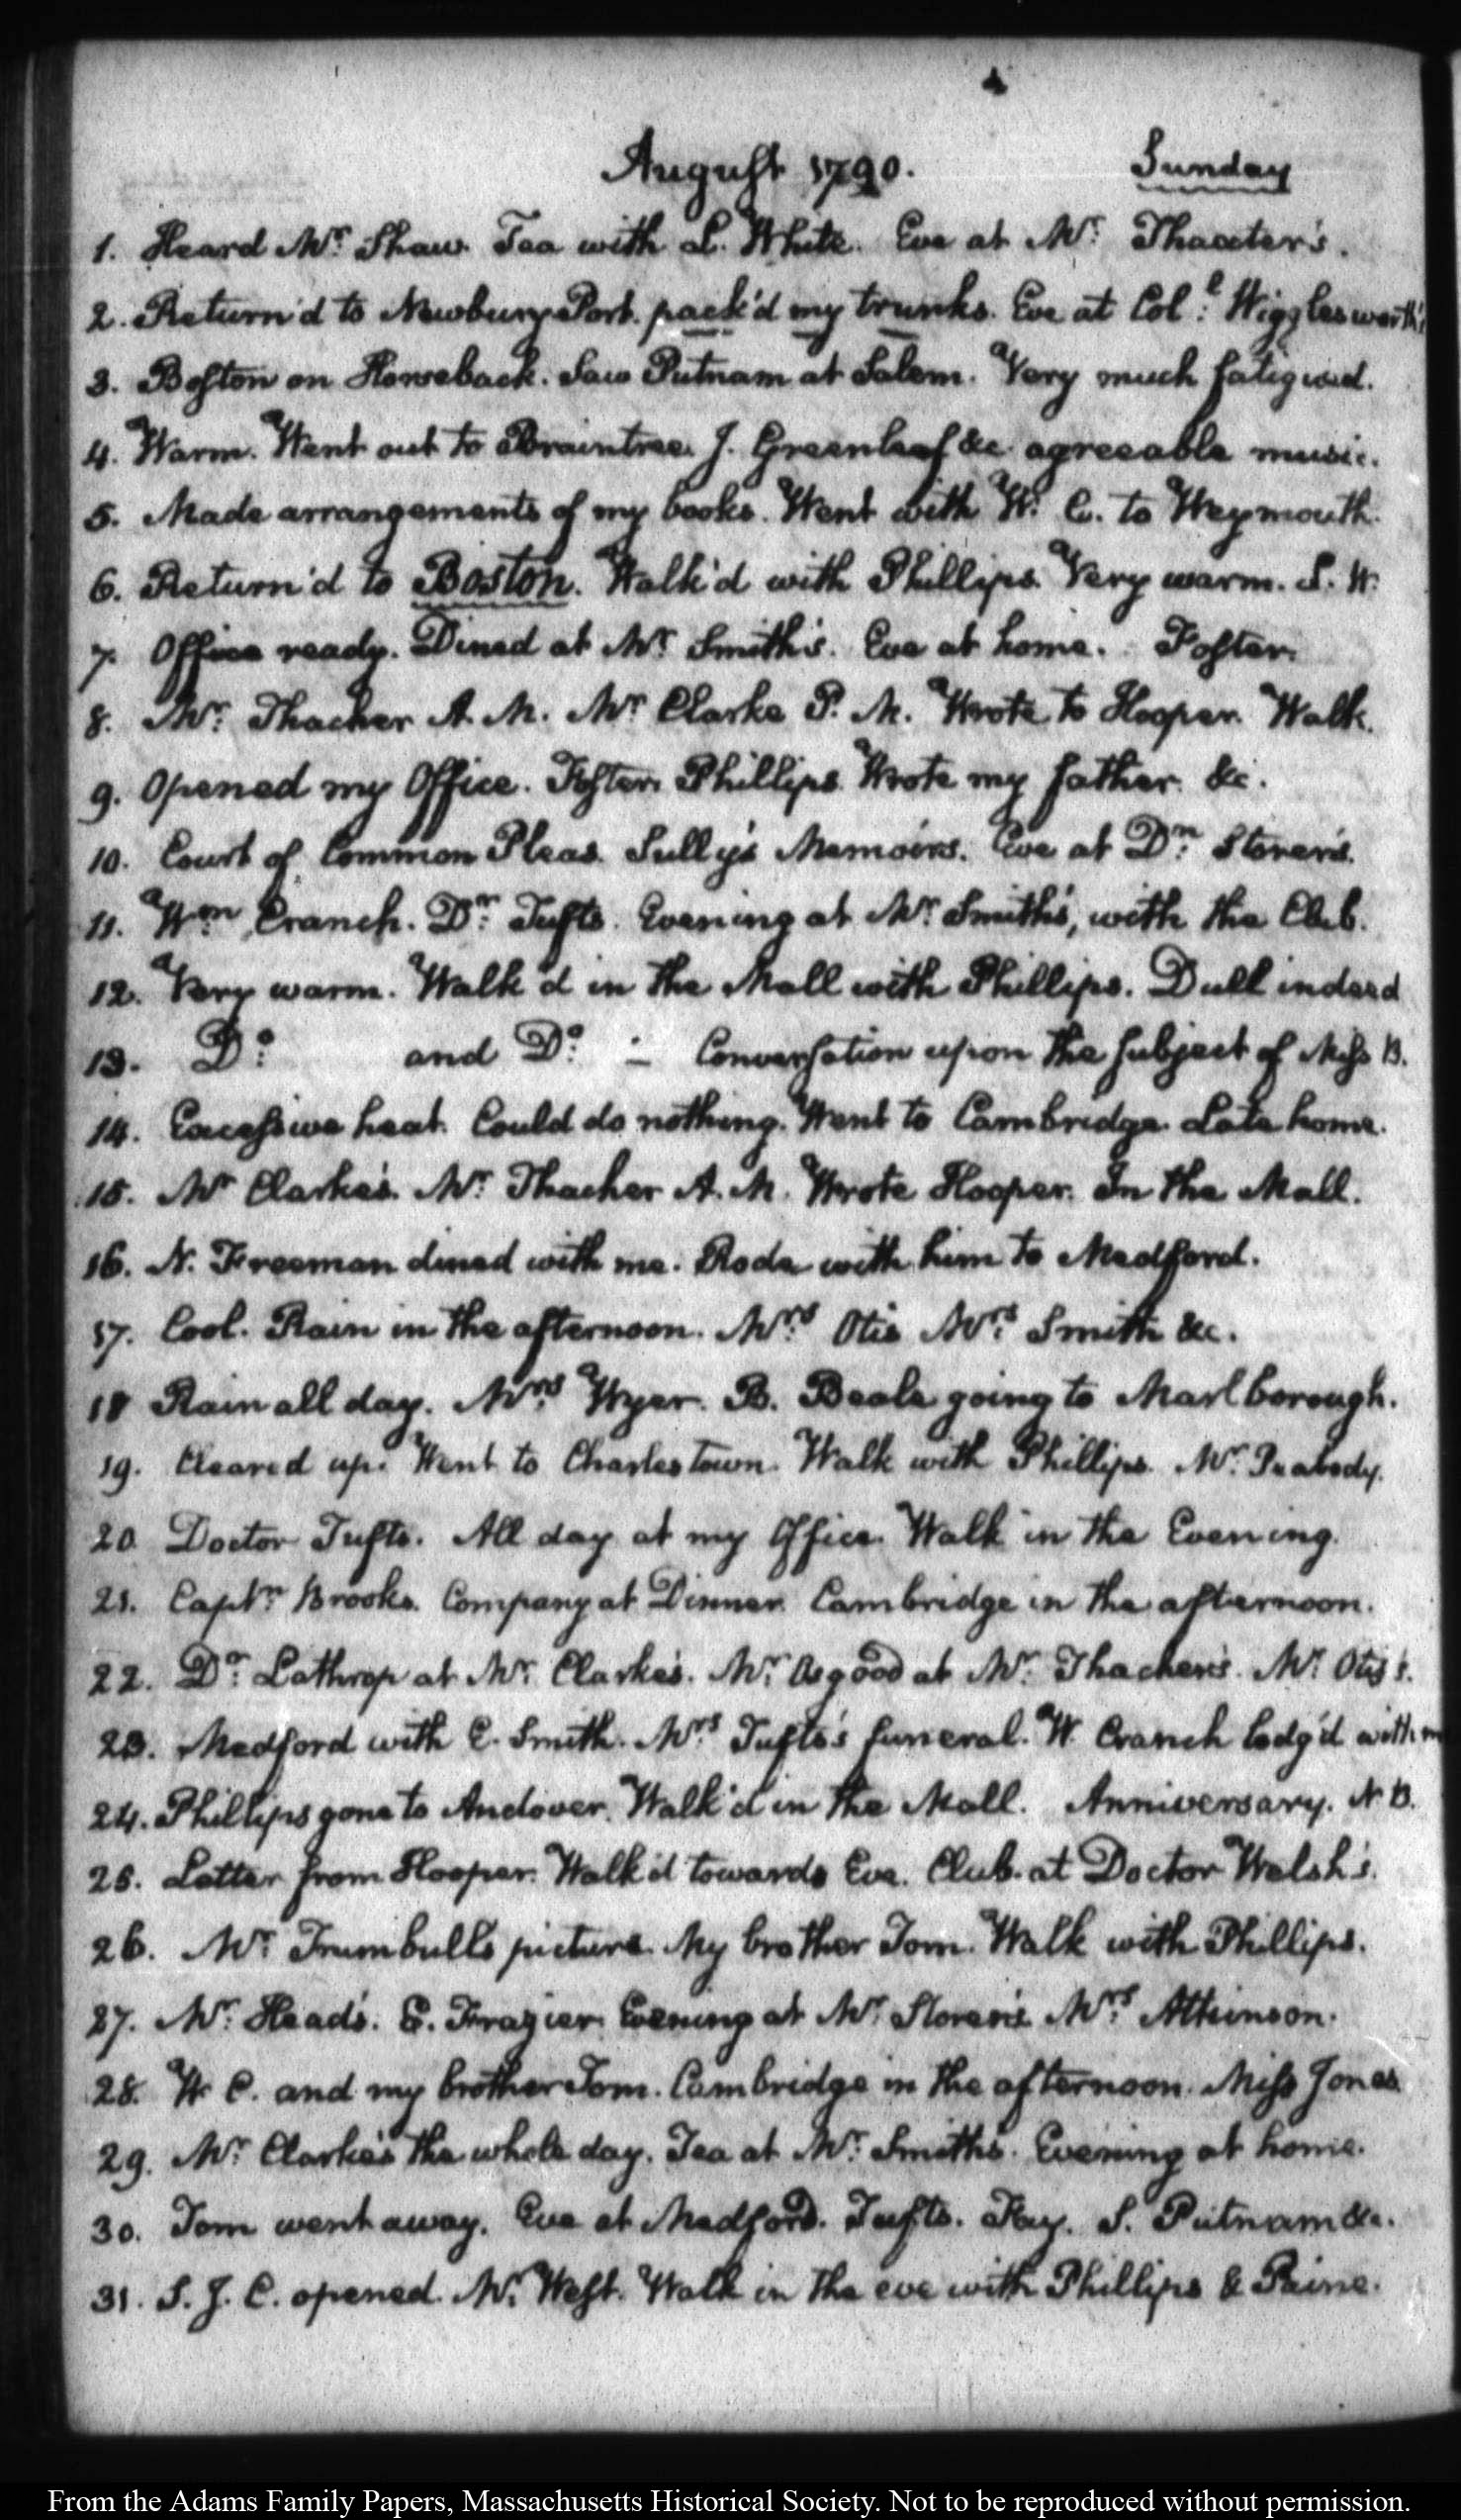 August 1790. Sunday
1. Heard Mr. Shaw. Tea with L. White. Eve at Mr. Thaxter's.
2. Return'd to Newbury Port. pack'd my trunks. Eve at Coll. Wigglesworth's
3. Boston on Horseback. Saw Putnam at Salem. Very much fatigued.
4. Warm. Went out to Braintree. J. Greenleaf &c agreeable music.
5. Made arrangements of my books. Went with W. C. to Weymouth.
6. Return'd to Boston. Walk'd with Phillips. Very warm. S. W.
7. Office ready. Dined at Mr Smith's. Eve at home. Foster.
8. Mr. Thacher A. M. Mr Clarke P. M. Wrote to Hooper. Walk.
9. Opened my Office. Foster. Phillips. Wrote my father. &c.
10. Court of Common Pleas. Sully's Memoirs. Eve at Dn. Storer's.
11. Wm. Cranch. Dr. Tufts. Evening at Mr. Smith's, with the Club.
12. Very warm. Walk'd in the Mall with Phillips. Dull indeed
13. Do. and Do. — Conversation upon the subject of Miss B.
14. Excessive heat. Could do nothing. Went to Cambridge. Late home.
15. Mr Clarke's. Mr. Thacher A. M. Wrote Hooper. In the Mall.
16. N. Freeman dined with me. Rode with him to Medford.
17. Cool. Rain in the afternoon. Mrs. Otis Mrs. Smith &c.
18 Rain all day. Mrs. Wyer. B. Beale going to Marlborough.
19. Cleared up. Went to Charlestown. Walk with Phillips. Mr. Peabody.
20. Doctor Tufts. All day at my Office. Walk in the Evening.
21. Captn. Brooks. Company at Dinner. Cambridge in the afternoon.
22. Dr. Lathrop at Mr. Clarke's. Mr. Osgood at Mr. Thacher's. Mr. Otis's.
23. Medford with E. Smith. Mrs Tufts's funeral. W. Cranch lodg'd with me
24. Phillips gone to Andover. Walk'd in the Mall. Anniversary. N B.
25. Letter from Hooper. Walk'd towards Eve. Club at Doctor Welsh's.
26. Mr. Trumbull's picture. My brother Tom. Walk with Phillips.
27. Mr. Head's. E. Frazier. Evening at Mr. Storer's Mrs. Atkinson.
28. W C. and my brother Tom. Cambridge in the afternoon. Miss Jones
29. Mr. Clarke's the whole day. Tea at Mr. Smith's. Evening at home.
30. Tom went away. Eve at Medford. Tufts. Fay. S. Putnam &c.
31. S. J. C. opened. Mr. West. Walk in the eve with Phillips & Paine.
From the Adams Family Papers, Massachusetts Historical Society. Not to be reproduced without permission.